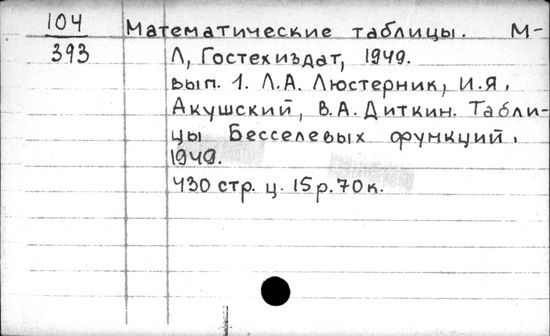 104 Математические таблицы. М-
393 Л, Гостехиздат, 1949.
вып. 1. Л.А. Люстерник, И.Я.
Акушский, В.А. Диткин. Табли-
цы Бесселевых функций.
1949.
430 стр. ц. 15р.70к.